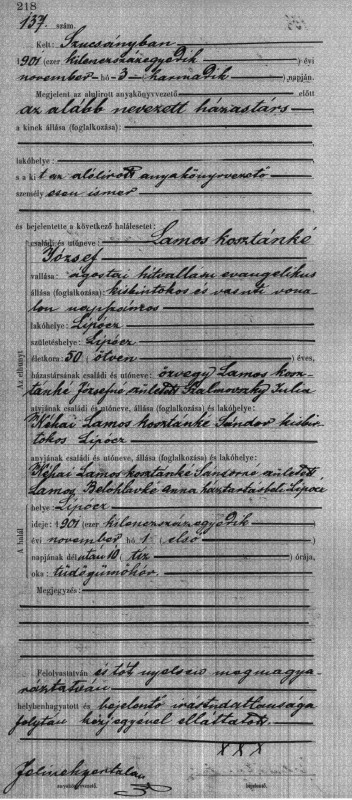 218
137. szám.
Kelt: Szucsányban
1901 (ezer kilenczszázegyedik) évi
november hó 3 (harmadik) napján.
Megjelent az alulirott anyakönyvvezető előtt
az alább nevezett házastárs
a kinek állása (foglalkozása):
lakóhelye:
s a kit az alólirott anyakönyvvezető
személyesen ismer
és bejelentette a következő halálesetet:
családi és utóneve: Lamos kosztánké
József
vallása: ágostai hitvallású evangelikus
állása (foglalkozása): kisbirtokos és vasuti vona
lon napszámos
lakóhelye: Lipócz
születéshelye: Lipócz
életkora: 50 (ötven) éves,
házastársának családi és utóneve: özvegy Lamos kosz-
tánké Józsefné született Julia
atyjának családi és utóneve, állása (foglalkozása) és lakóhelye:
Néhai Lamos kosztánké Sándor kisbir-
tokos Lipócz
anyjának családi és utóneve, állása (foglalkozása) és lakóhelye:
Néhai Lamos kosztánké Sándorné született
Lamos Anna háztartásbeli Lipócz
Az elhunyt
helye: Lipócz
ideje: 1901 (ezer kilenczszázegyedik)
évi november hó 1 (első)
napjának délután 10 (tiz) órája,
oka: tüdőgümőkór.
A halál
Megjegyzés:
Felolvastatván és tót nyelven megmagya-
ráztatván
helybenhagyatott és bejelentő irástudatlansága
folytán kézjegyével elláttatott.
XXX
anyakönyvvezető.
bejelentő.